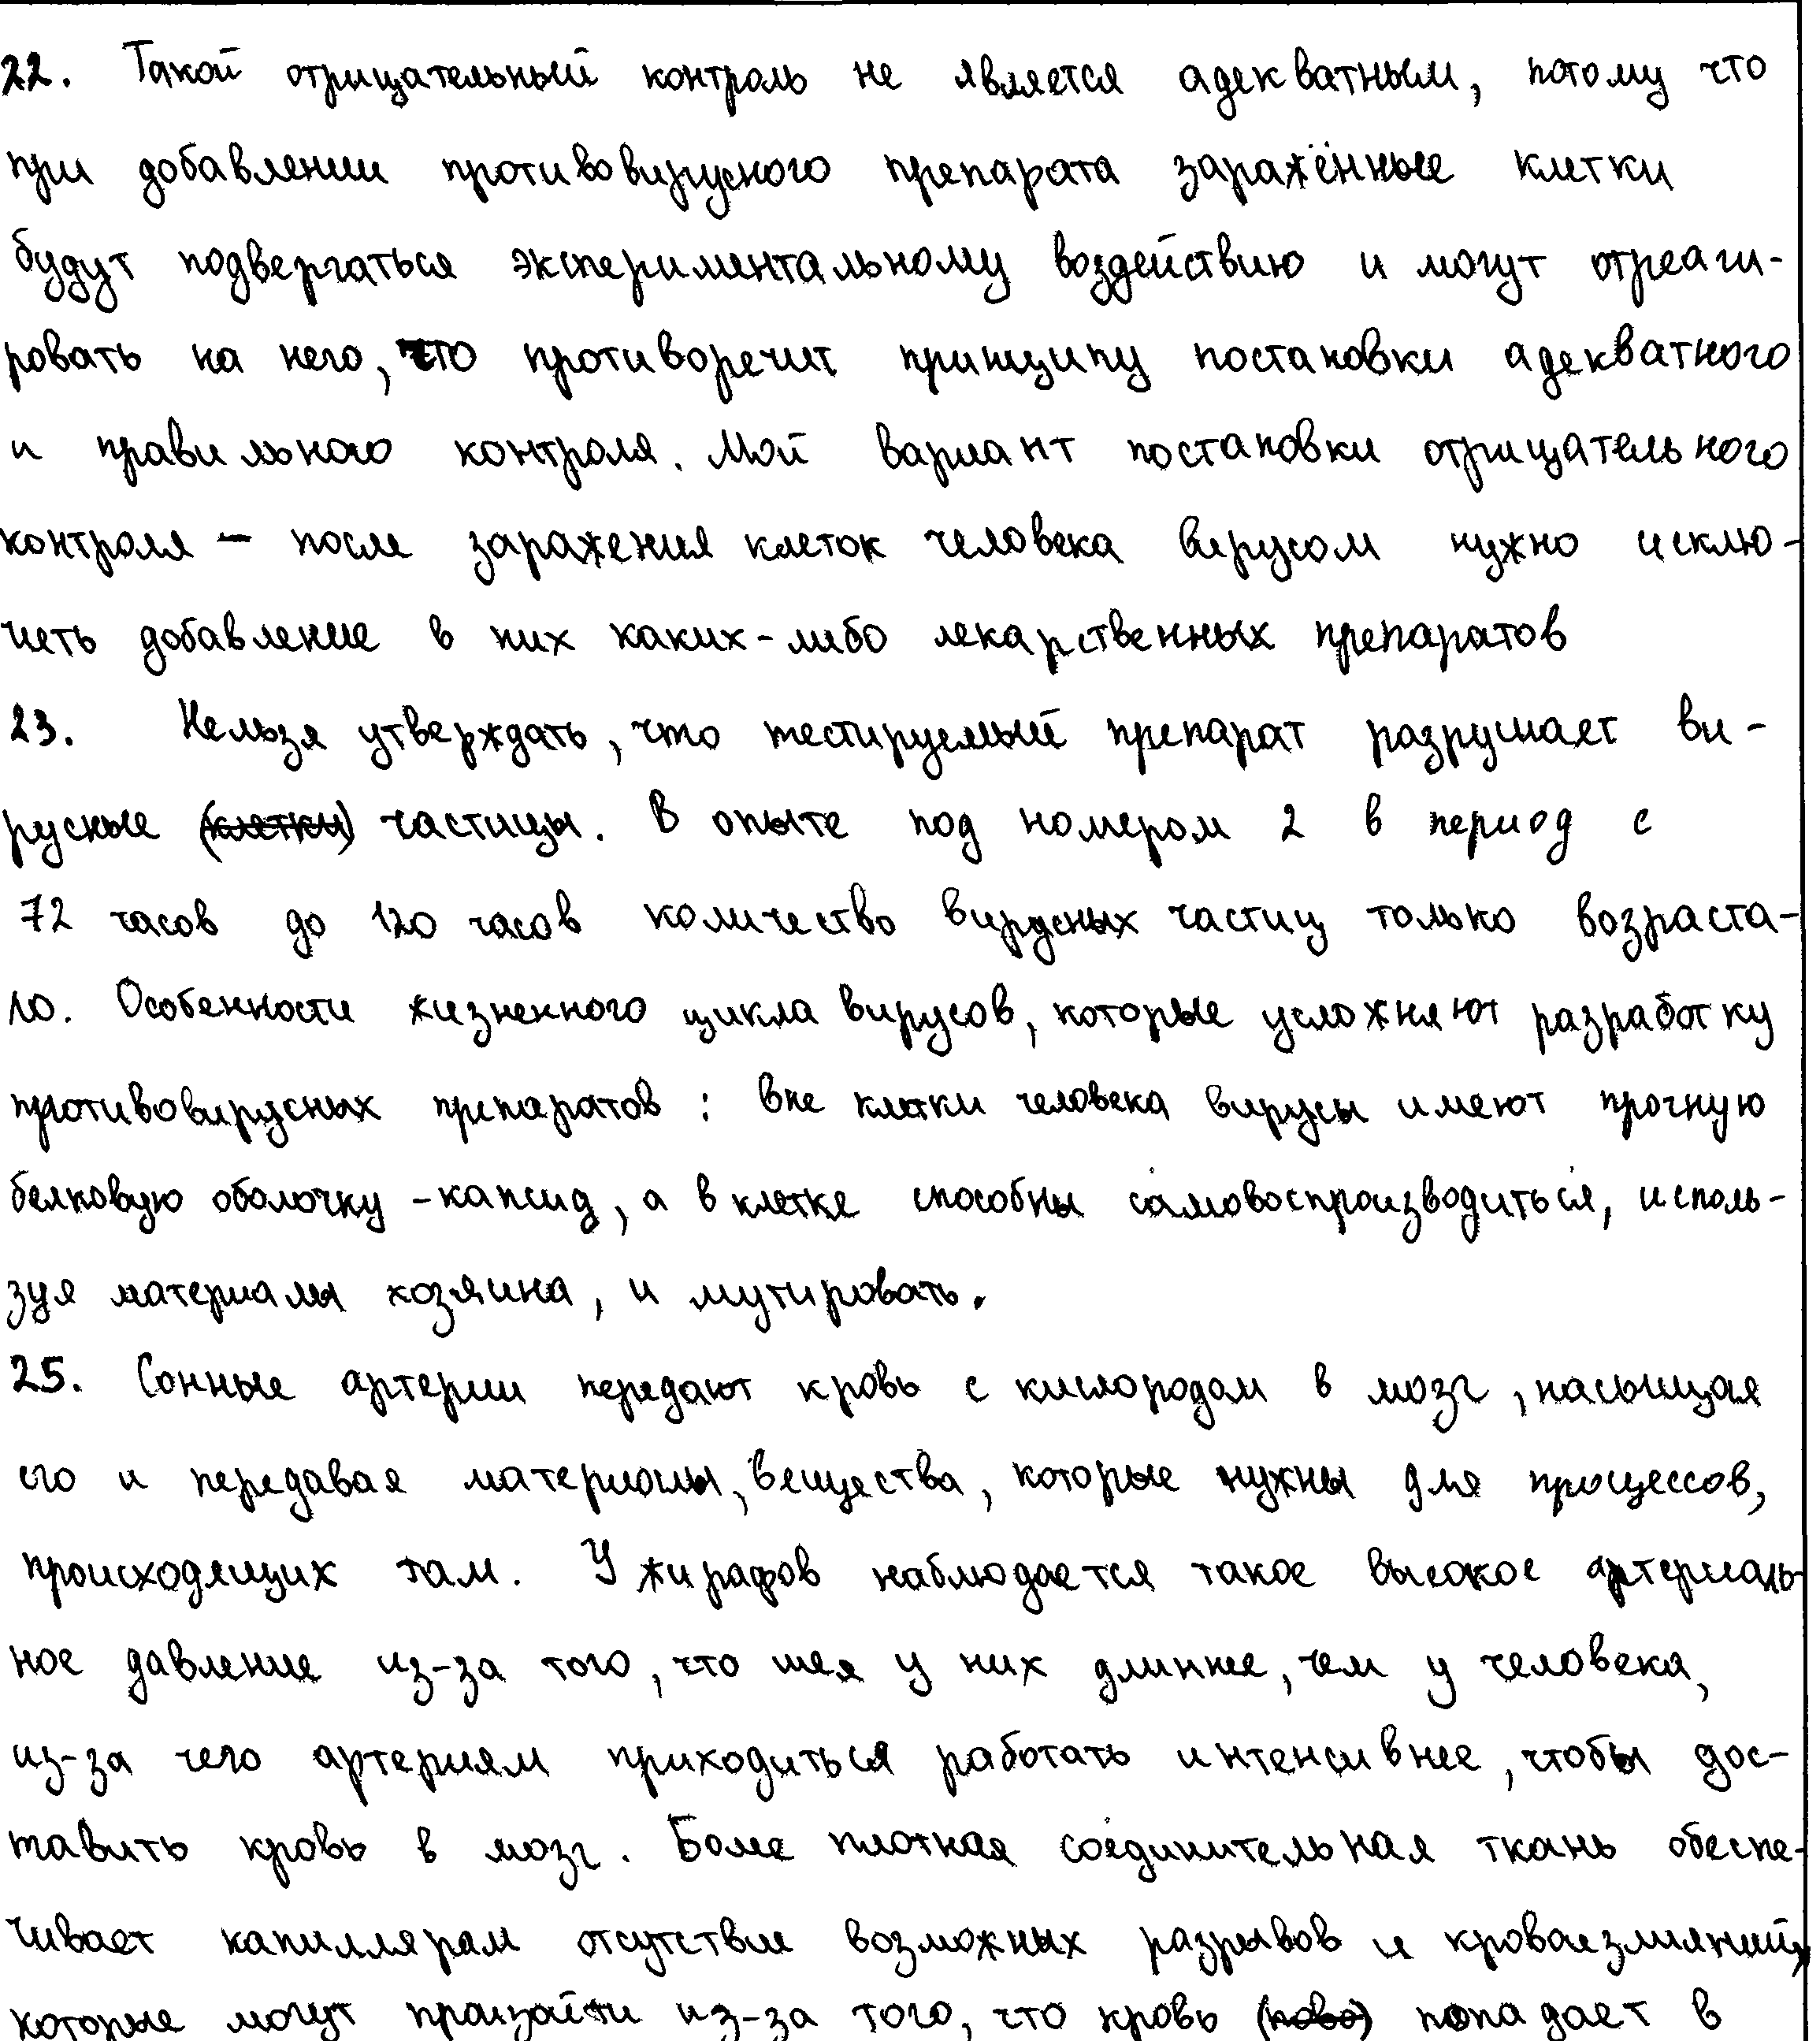 22. Такой отрицательный контроль не является адекватным, потому что
при добавлении противовирусного препарата заражённые клетки
будут подвергаться экспериментальному воздействию и могут отреаги-
ровать на него, что противоречит принципу постановки адекватного
и правильного контроля. Мой вариант постановки отрицательного
контроля – после заражения клеток человека вирусом нужно исклю-
чить добавление в них каких-либо лекарственных препаратов
23. Нельзя утверждать, что тестируемый препарат разрушает ви-
русные (клетки) частицы. В опыте под номером 2 в период с
72 часов до 120 часов количество вирусных частиц только возраста-
ло. Особенности жизненного цикла вирусов, которые усложняют разработку
противовирусных препаратов: вне клетки человека вирусы имеют прочную
белковую оболочку - капсид, а в клетке способны самовоспроизводиться, исполь-
зуя материалы хозяина, и мутировать.
25. Сонные артерии передают кровь с кислородом в мозг, насыщая
его и передавая материалы, вещества, которые нужны для процессов,
происходящих там. У жирафов наблюдается такое высокое артериаль-
ное давление из-за того, что шея у них длиннее, чем у человека,
из-за чего артериям приходиться работать интенсивнее, чтобы дос-
тавить кровь в мозг. Более плотная соединительная ткань обеспе-
чивает капиллярам отсутствие возможных разрывов и кровоизлияний,
которые могут произойти из-за того, что кровь попадает в